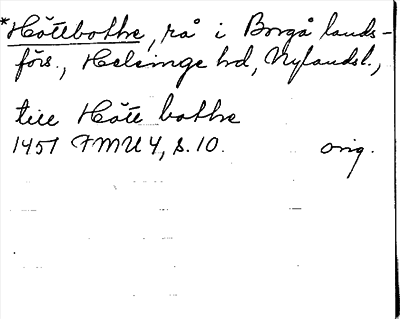 *Höttbothe, rå i Borgå lands-
förs., Helsinge hd, Nylandsl.,
till Hött bothe
1451 FMU 4, s. 10. orig.